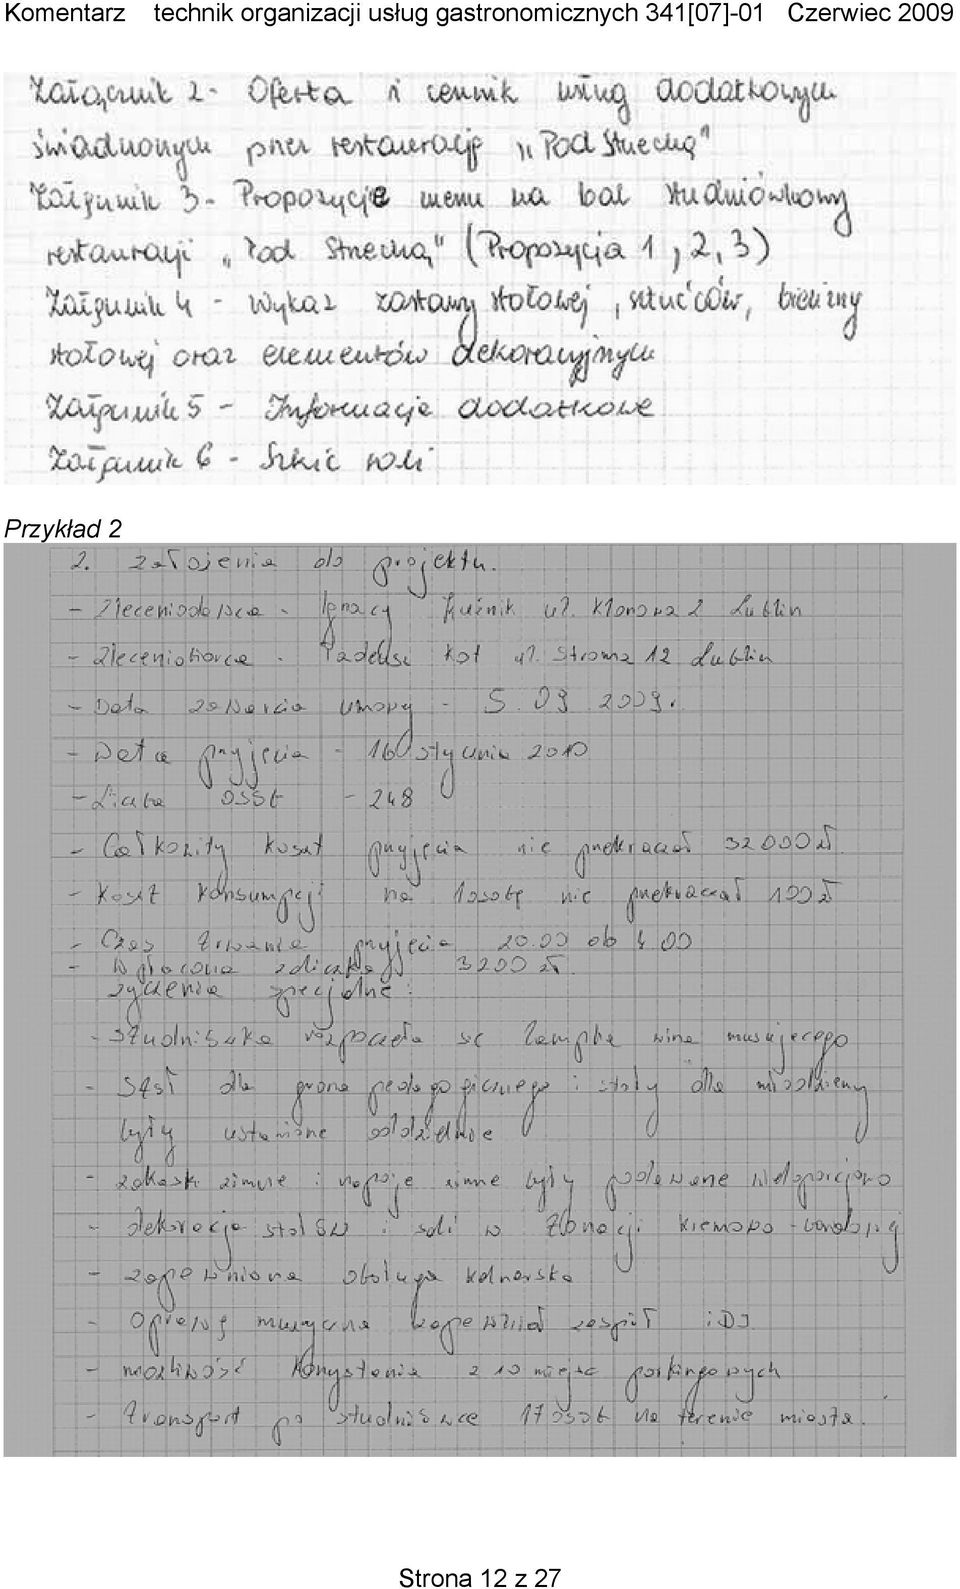 Komentarz technik organizacji usług gastronomicznych 341[07]-01 Czerwiec 2009
Załącznik 2 - Oferta i cennik usług dodatkowych
świadczonych przez restaurację "Pod Strzechą"
Załącznik 3 - Propozycje menu na bal studniówkowy
restauracji "Pod Strzechą" (Propozycja 1, 2, 3)
Załącznik 4 - Wykaz zastawy stołowej, sztućców, bielizny
stołowej oraz elementów dekoracyjnych
Załącznik 5 - Informacje dodatkowe
Załącznik 6 - Szkic soli
Przykład 2
2. założenia do projektu.
- Zleceniodawca - Ignacy Kuźnik ul. Klonowa 2 Lublin
- Zleceniobiorca - Tadeusz Kot ul. Stroma 12 Lublin
- Data zawarcia umowy - 5.09.2009r.
- Data przyjęcia - 16 stycznia 2010
- Liczba osób - 248
- Całkowity koszt przyjęcia nie przekraczał 32000 zł
- Koszt konsumpcji na 1 osobę nie przekraczał 100 zł
- Czas trwania przyjęcia 20.00 do 4.00
- Wpłacona zaliczka 3200 zł
życzenia specjalne:
- studniówka rozpoczęła się lampką wina musującego
- stół dla grona pedagogicznego i stoły dla młodzieży
były ustawione oddzielnie
- zakąski zimne i napoje zimne były podawane wieloporcjowo
- dekoracja stołów i sali w tonacji kremowo-bordowej
- zapewniona obsługa kelnerska
- Oprawę muzyczną zapewniał zespół i DJ
- możliwość korzystania z 10 miejsc parkingowych
- transport po studniówce 17 osób na terenie miasta.
Strona 12 z 27